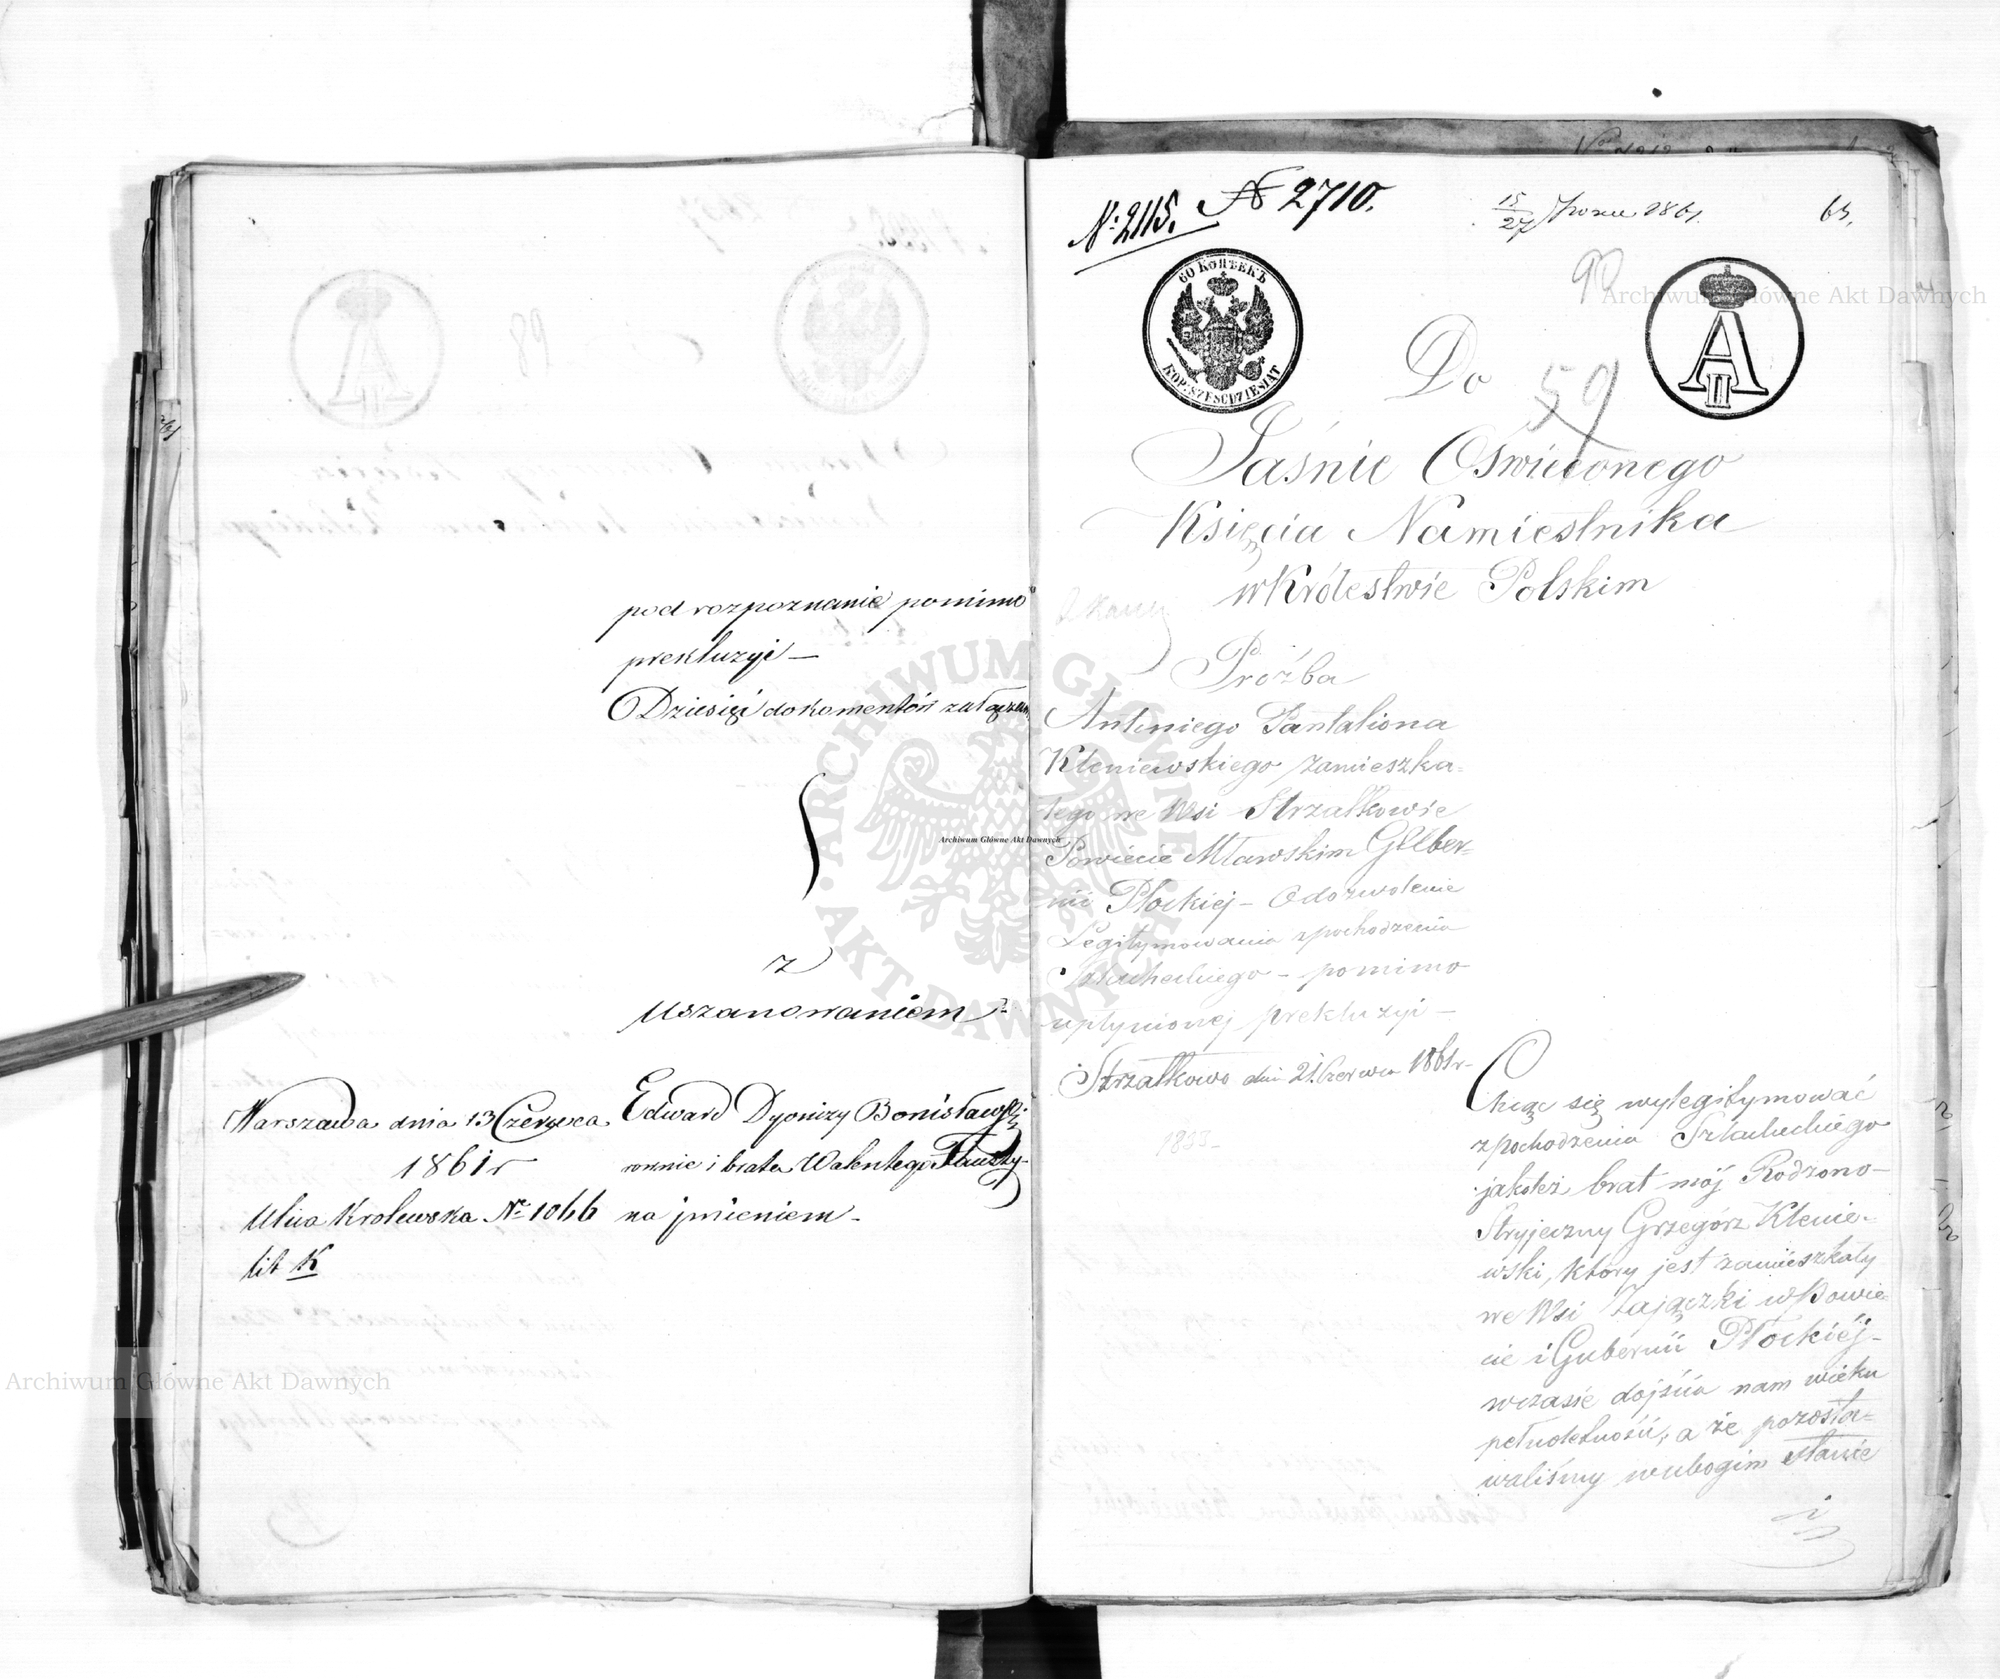 pod rozpoznanie pomimo
prekluzyi —
Dziesięć dokomentów załączam
z
Uszanowaniem
Warszawa dnia 13 Czerwca
1861 r
Ulica Krolewska Nr 1066
lit K
Edward Dyonizy Bonisławski
rownie i brata Walentego Fausty-
na jmieniem -
N: 2115. N 2710.
15/27 1861.
63.
90
60 КОПѢЕКЪ
KOP: SZEŚĆDZIESIĄT
A II
Do
59
Jaśnie Oświeconego
Księcia Namiestnika
w Królestwie Polskim
Prózba
Antoniego Pantaliona
Kleniewskiego zamieszka=
łego we Wsi Strzałkowie
Powiecie Mławskim Gilber-
nii Płockiej - O dozwolenie
Legitymowania z pochodzenia
Szlacheckiego - pomimo
upłynionej prekluzyi -
Strzałkowo dnia 21 Czerwca 1861 r-
1853
Chcąc się wylegitymować
z pochodzenia Szlacheckiego
jakoteż brat mój Rodzono-
Stryjeczny Grzegórz Klenie-
wski, który jest zamieszkały
we Wsi Zajączki w Powie-
cie i Gubernii Płockiéj -
w czasie dojścia nam wieku
pełnoletności, a że pozosta=
waliśmy w ubogim stanie
i
Archiwum Główne Akt Dawnych
Archiwum Główne Akt Dawnych
Archiwum Główne Akt Dawnych
ARCHIWUM GŁÓWNE
AKT DAWNYCH